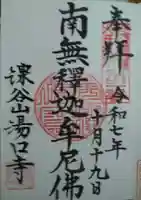 奉拝
令和七年
十月十九日
南無釋迦牟尼佛
湯口寺